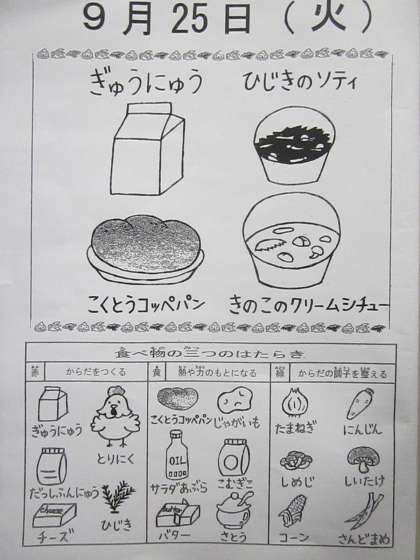 9月25日(火)
ぎゅうにゅう
ひじきのソティ
こくとうコッペパン
きのこのクリームシチュー
食べ物の三つのはたらき
赤 からだをつくる
黄 熱や力のもとになる
緑 からだの調子を整える
ぎゅうにゅう
とりにく
だっしふんにゅう
ひじき
Cheese
チーズ
こくとうコッペパン
じゃがいも
OIL
サラダあぶら
こむぎこ
Butter
バター
さとう
たまねぎ
にんじん
しめじ
しいたけ
コーン
さんどまめ